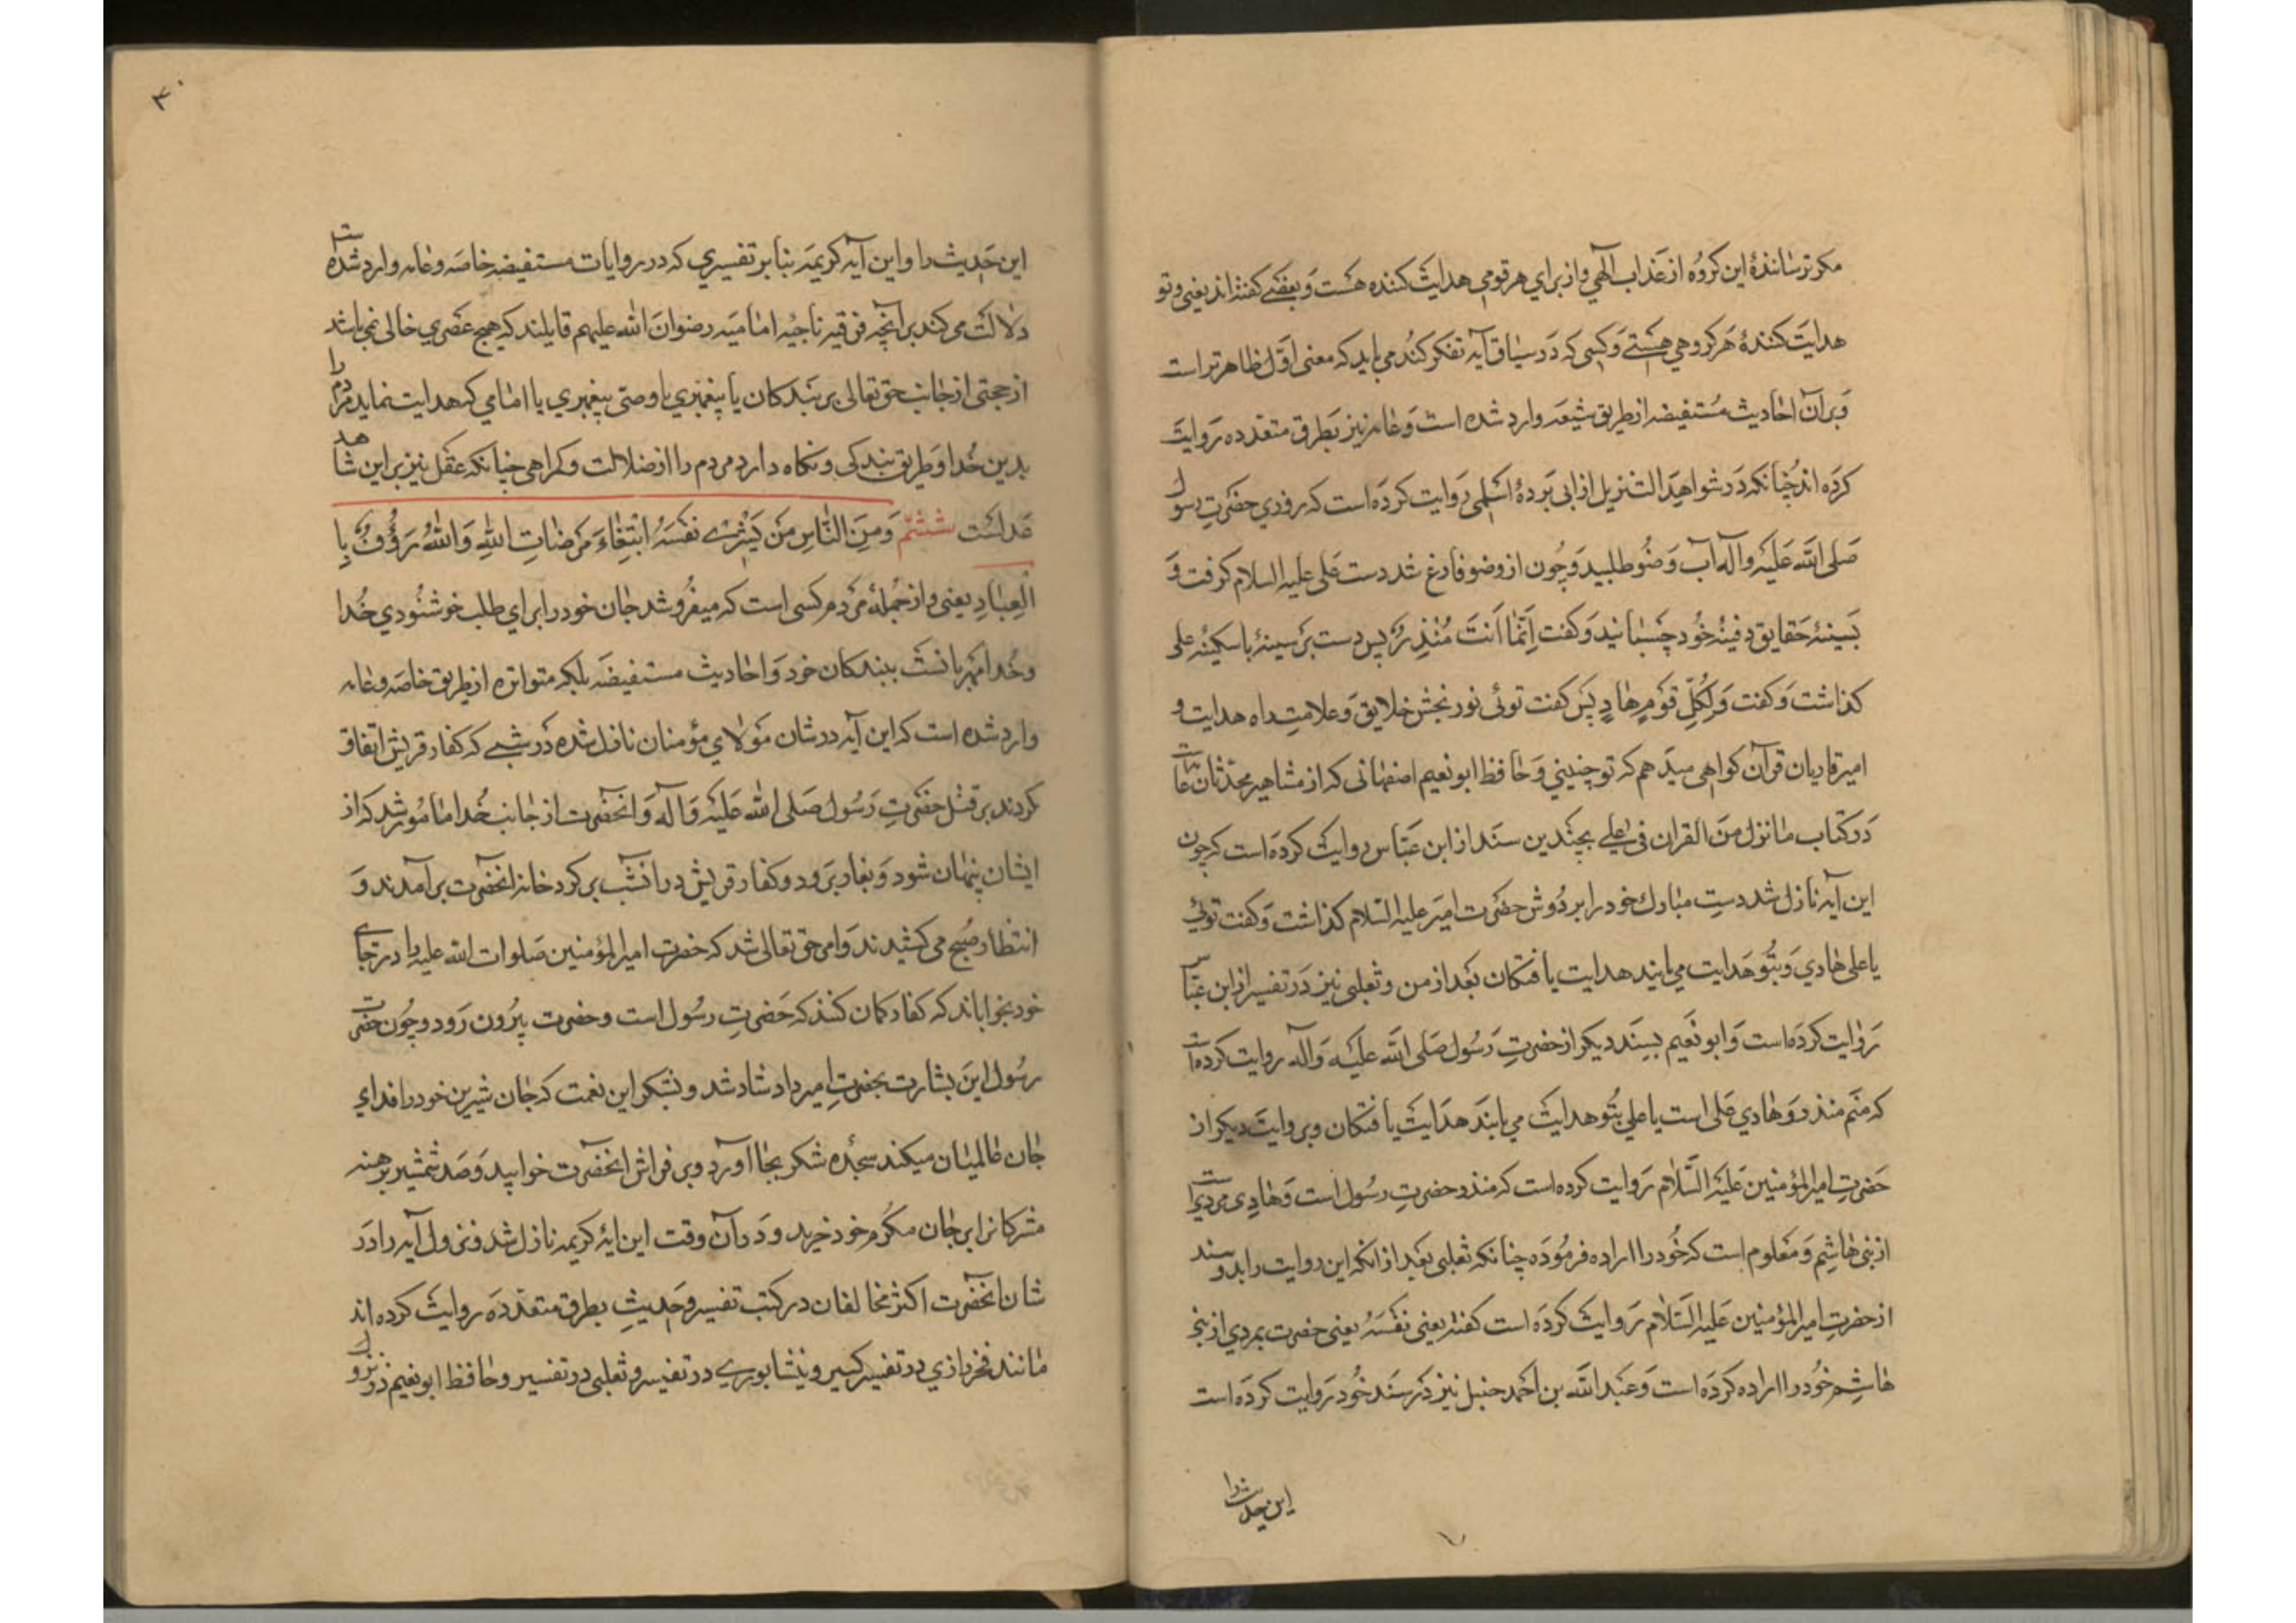 مکر ترسانندۀ این کروه از عذاب الهی و از برای هر قومی هدایت کننده هست و بعضی کفته‌اند یعنی و تو
هدایت کنندۀ هر کروهی هستی و کسی که در سیاق آیه تفکر کند می‌یابد که معنی اول ظاهرتر است
و بر آن احادیث مستفیضه از طریق شیعه وارد شده است و عامه نیز بطرق متعدده روایت
کرده‌اند چنانکه در شواهد التنزیل از ابی بردۀ اسلمی روایت کرده است که روزی حضرت رسول
صلی الله علیه و آله آب وضو طلبید و چون از وضو فارغ شد دست علی علیه السلام کرفت و
بسینۀ حقایق دفینۀ خود چسبانید و کفت انما انت منذر پس دست بر سینۀ با سکینۀ علی
کذاشت و کفت و لکل قوم هاد پس کفت توئی نور بخش خلایق و علامت راه هدایت و
امیر قاریان قرآن کواهی میدهم که تو چنینی و حافظ ابو نعیم اصفهانی که از مشاهیر محدثان عامه است
در کتاب ما نزل من القران فی علی بچندین سند از ابن عباس روایت کرده است که چون
این آیه نازل شد دست مبارک خود را بر دوش حضرت امیر علیه السلام کذاشت و کفت توئی
یا علی هادی و بتو هدایت می‌یابند هدایت یافتکان بعد از من و ثعلبی نیز در تفسیر از ابن عباس
روایت کرده است و ابو نعیم بسند دیکر از حضرت رسول صلی الله علیه و آله روایت کرده است
که منم منذر و هادی علی است یا علی بتو هدایت می‌یابند هدایت یافتکان و بروایت دیکر از
حضرت امیر المؤمنین علیه السلام روایت کرده است که منذر حضرت رسول است و هادی مردی است
از بنی هاشم و معلوم است که خود را اراده فرموده چنانکه ثعلبی بعد از انکه این روایت را بدو سند
از حضرت امیر المؤمنین علیه السلام روایت کرده است کفته یعنی نفسه یعنی حضرت بمردی از بنی
هاشم خود را اراده کرده است و عبد الله بن احمد حنبل نیز در سند خود روایت کرده است
این حدیث را
۴۰
این حدیث را و این آیه کریمه بنا بر تفسیری که در روایات مستفیضه خاصه و عامه وارد شده است
دلالت می‌کند بر آنچه فرقه ناجیه امامیه رضوان الله علیهم قایلند که هیچ عصری خالی نمی‌باشد
از حجتی از جانب حق تعالی بر بندکان یا پیغمبری یا وصی پیغمبری یا امامی که هدایت نماید مردم را
بدین خدا و طریق بندکی و نکاه دارد مردم را از ضلالت و کمراهی چنانکه عقل نیز بر این شاهد
عدلست ششم و من الناس من یشری نفسه ابتغاء مرضات الله و الله رؤف با
لعباد یعنی و از جملۀ مردم کسی است که میفروشد جان خود را برای طلب خوشنودی خدا
و خدا مهربانست ببندکان خود و احادیث مستفیضه بلکه متواتره از طریق خاصه و عامه
وارد شده است که این آیه در شان مولای مؤمنان نازل شده در شبی که کفار قریش اتفاق
کردند بر قتل حضرت رسول صلی الله علیه و آله و انحضرت از جانب خدا مامور شد که از
ایشان پنهان شود و بغار برود و کفار قریش در انشب بر کرد خانه انحضرت برآمدند و
انتظار صبح می‌کشیدند و امر حق تعالی شد که حضرت امیر المؤمنین صلوات الله علیه را در جای
خود بخواباند که کفار کمان کنند که حضرت رسول است و حضرت بیرون رود و چون حضرت
رسول این بشارت بحضرت امیر داد شاد شد و بشکر این نعمت که جان شیرین خود را فدای
جان عالمیان میکند سجدۀ شکر بجا آورد و بر فراش انحضرت خوابید و صد شمشیر برهنه
مشرکانرا بر جان مکرم خود خرید و در آن وقت این ایۀ کریمه نازل شد و نزول آیه را در
شان انحضرت اکثر مخالفان در کتب تفسیر و حدیث بطرق متعدده روایت کرده‌اند
مانند فخر رازی در تفسیر کبیر و نیشابوری در تفسیر و ثعلبی در تفسیر و حافظ ابو نعیم در نزول